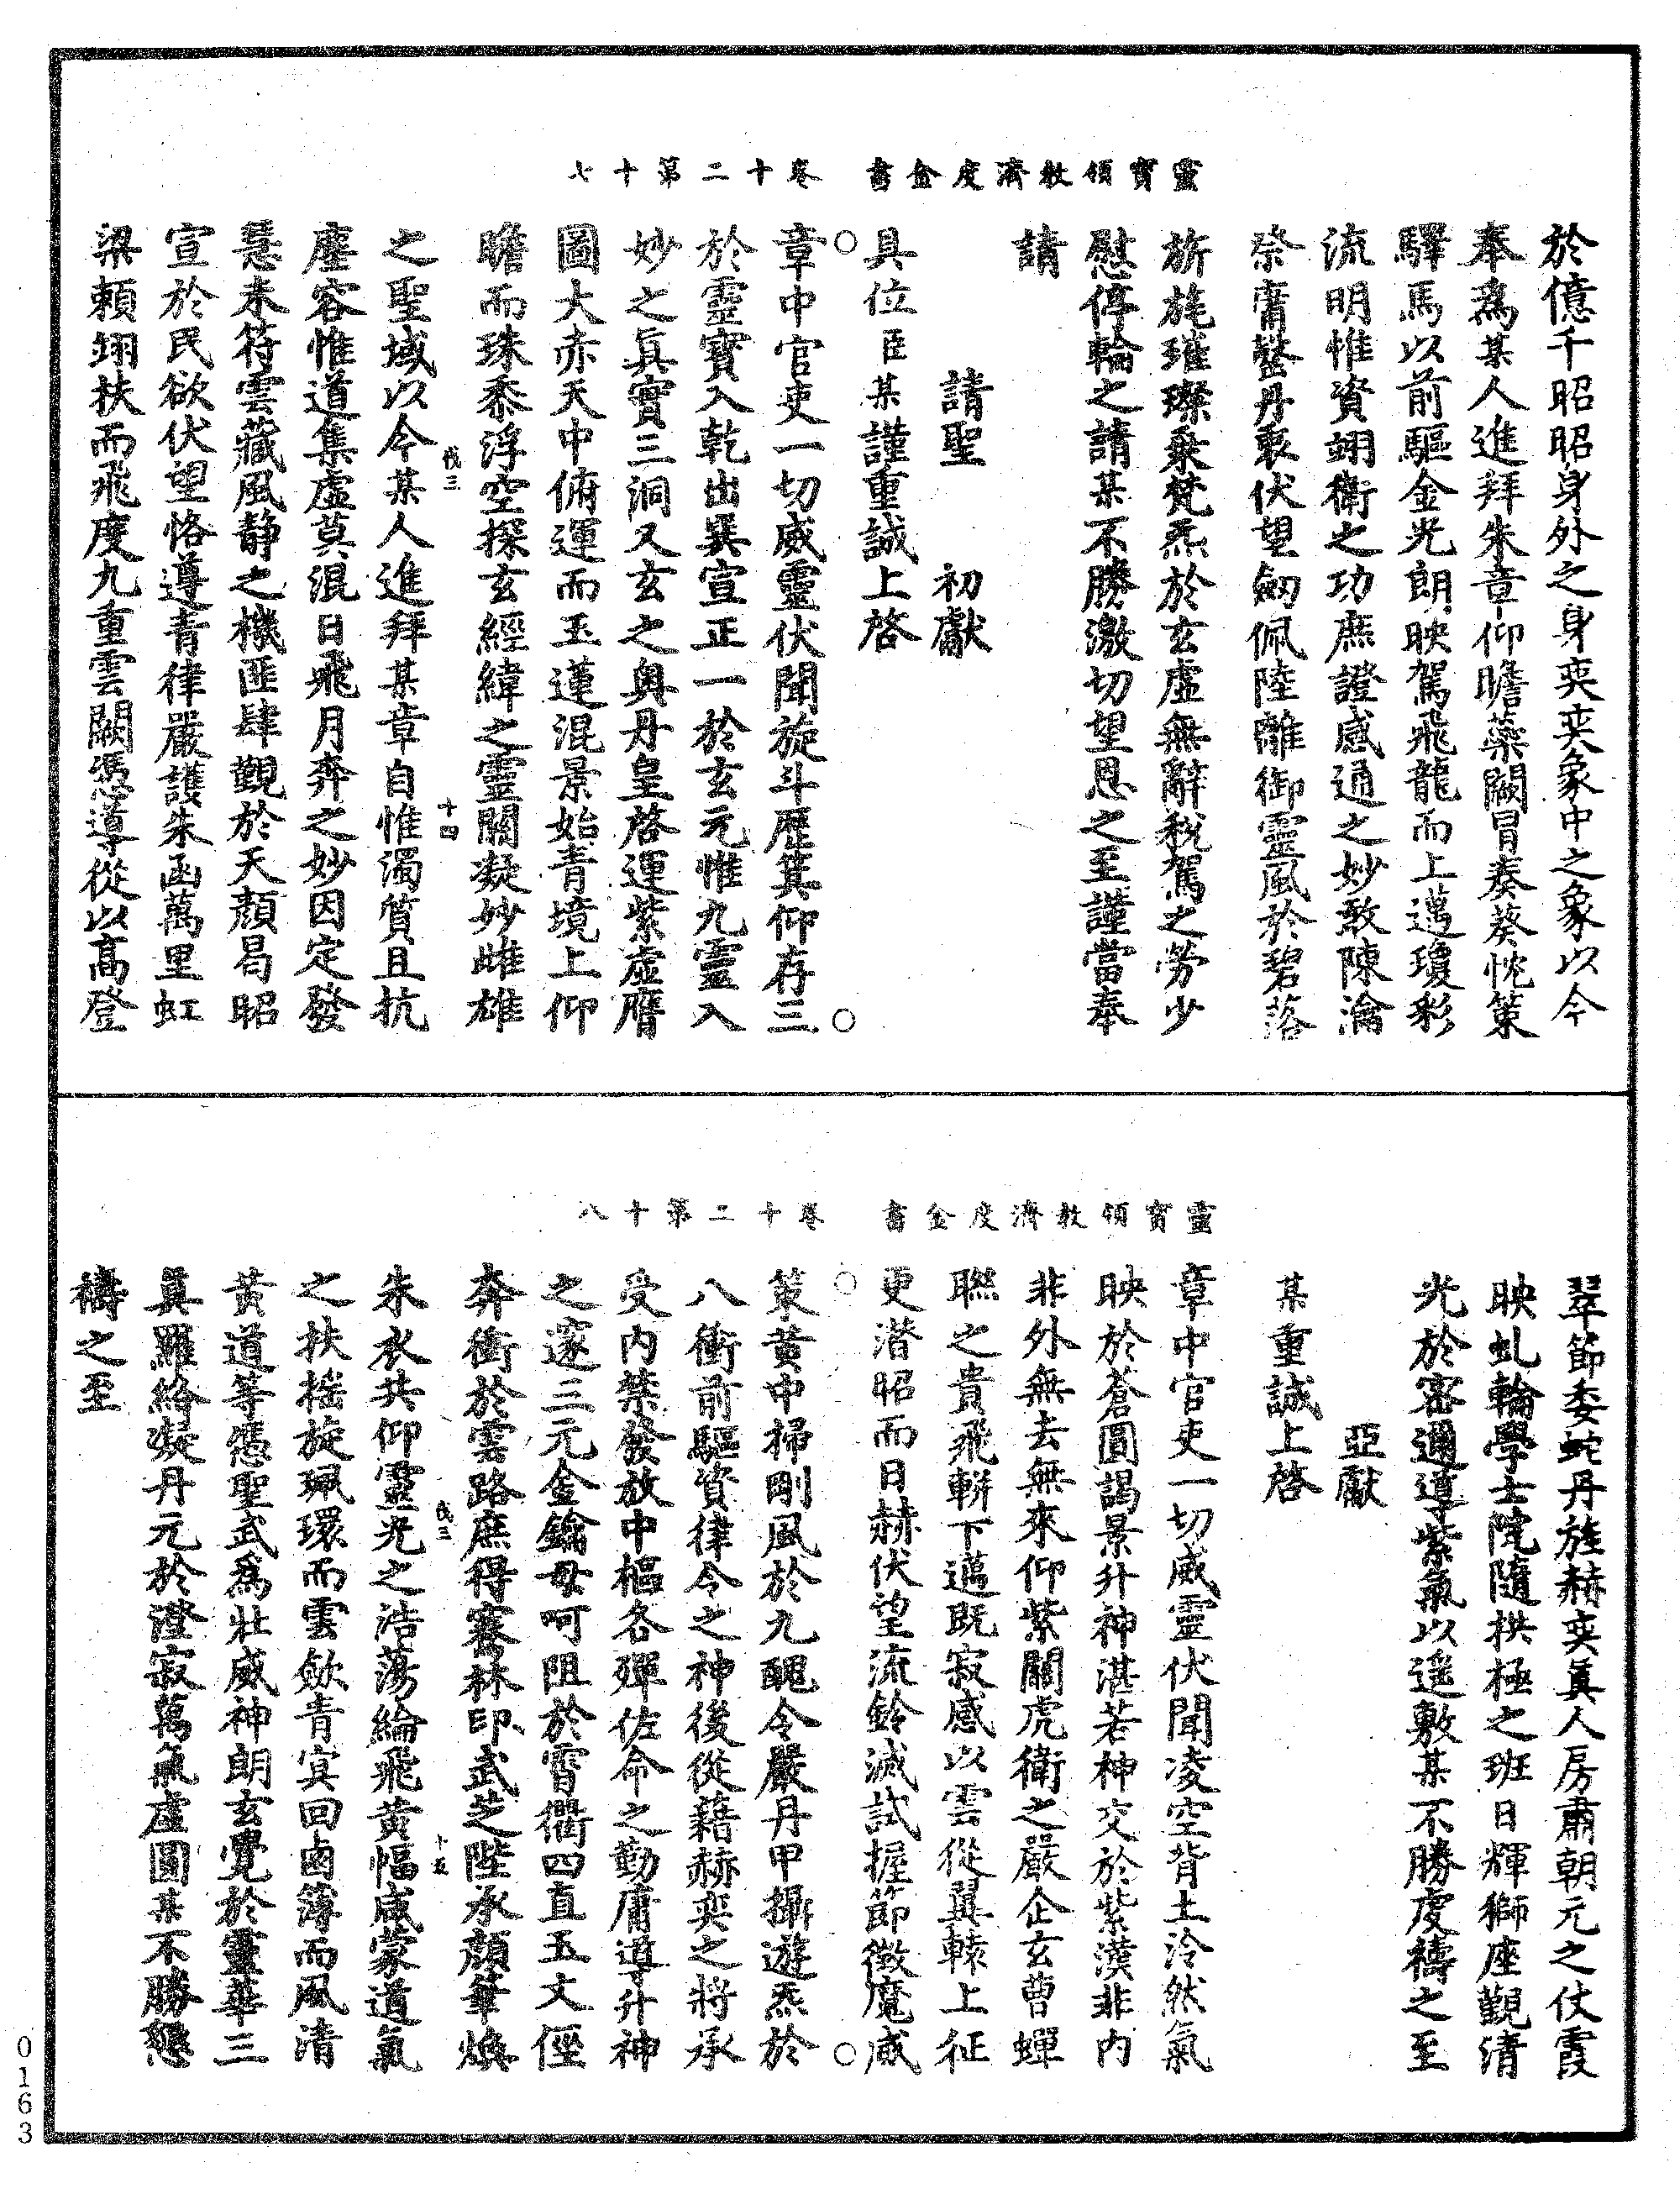 靈寶領教濟度金書　卷十二第十七
於億千昭昭身外之身奕奕象中之象以今
奉爲某人進拜朱章仰瞻蘂闕冒奏葵忱策
驛馬以前驅金光朗映駕飛龍而上邁瓊彩
流明惟資翊衛之功庶證感通之妙敢陳瀹
祭膏罄丹衷伏望劒佩陸離御靈風於碧落
旂旄璀璨乘梵炁於玄虛無辭稅駕之勞少
慰停輪之請某不勝激切望恩之至謹當奉
請
請聖　初獻
具位臣某謹重誠上啓
章中官吏一切威靈伏聞旋斗歷箕仰存三
於靈寶入乾出巽宣正一於玄元惟九靈入
妙之眞實三洞又玄之奥丹皇啓運紫虛膺
圖大赤天中俯運而玉蓮混景始青境上仰
瞻而珠黍浮空探玄經緯之靈關凝妙雌雄
之聖域以今某人進拜某章自惟濁質且抗
塵容惟道集虛莫混日飛月奔之妙因定發
慧未符雲藏風静之機匪肆觀於天顏曷昭
宣於民欲伏望恪遵青律嚴護朱函萬里虹
梁頼翊扶而飛度九重雲闕憑導從以高登
伐三　十四
靈寶領教濟度金書　卷十二第十八
翠節委蛇丹旌赫奕眞人房肅朝元之仗霞
映虬輪學士院隨拱極之班日輝獅座觀清
光於密邇導紫氣以遥敷某不勝虔禱之至
亞獻
某重誠上啓
章中官吏一切威靈伏聞凌空背土泠然氣
映於蒼圓謁景升神湛若神交於紫漠非内
非外無去無來仰紫關虎衛之嚴企玄曹蟬
聯之貴飛軿下邁既寂感以雲從翼轅上征
更潛昭而日赫伏望流鈴滅試握節徵魔咸
策黄中掃剛風於九醜令嚴丹甲攝遊炁於
八衝前驅資律令之神後從藉赫奕之將承
受内禁發放中樞各殫佐命之勤庸導升神
之邃三元金鑰毋呵阻於霄衢四直五丈徑
奔衝於雲路庶得騫林印武芝陛承顔筆煥
朱衣共仰靈光之浩蕩綸飛黄幅咸蒙道氣
之扶摇旋珮環而雲歛青冥回鹵簿而風清
黄道等憑聖武爲壯威神朗玄覺於靈華三
眞羅絡凝丹元於澄寂萬氣虛圓某不勝懇
禱之至
伐三　十五
0163